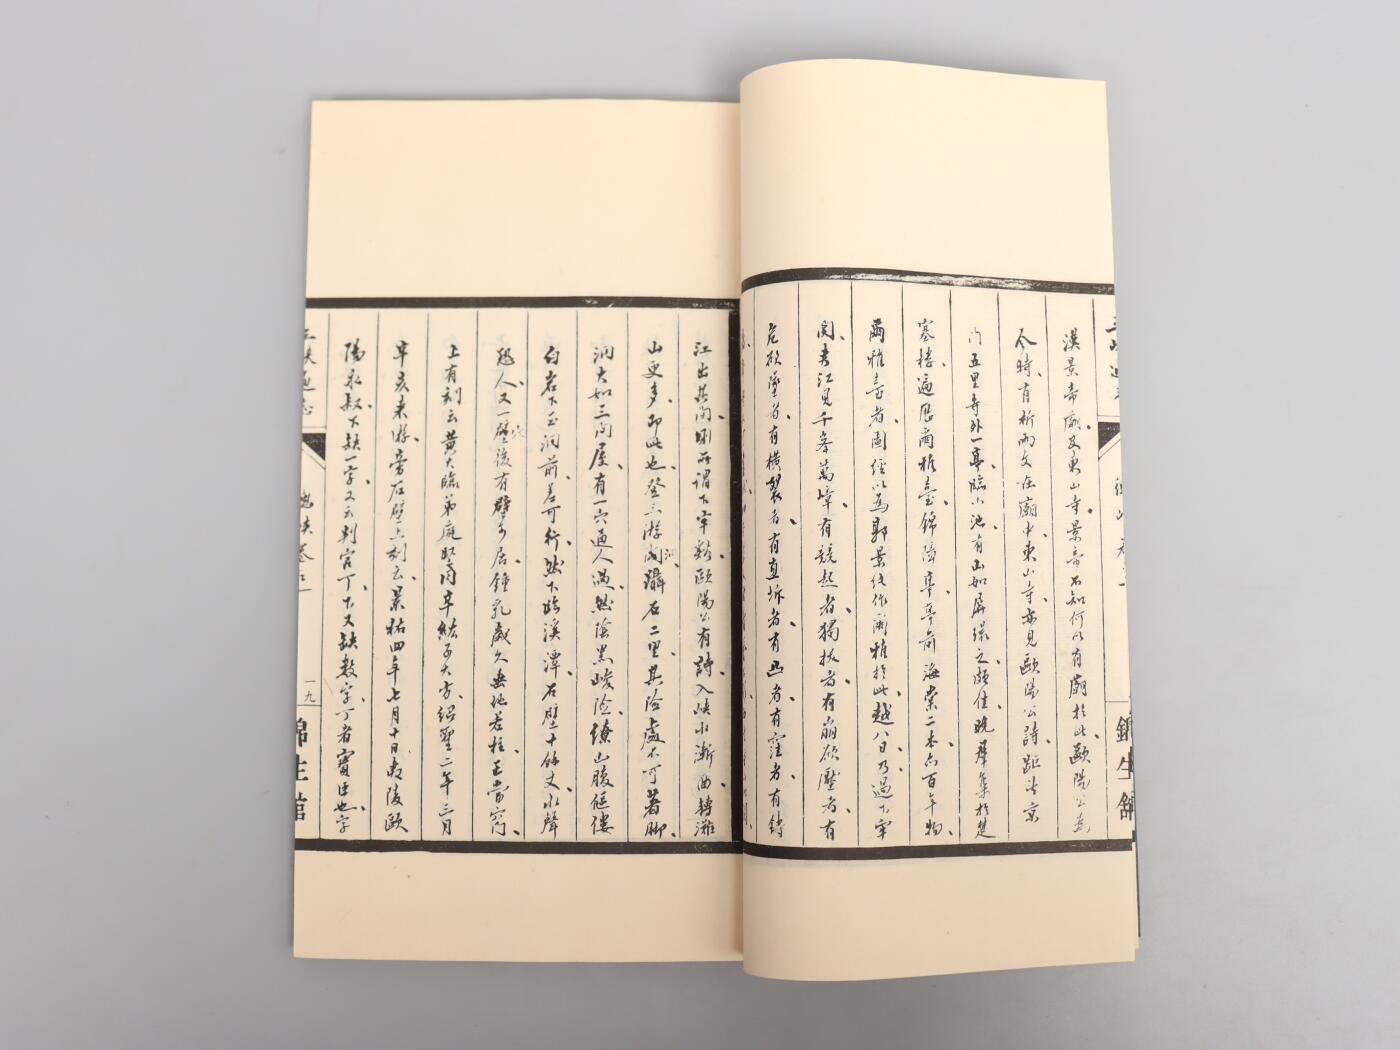 三峽通志
錦生館
漢景帝廟及東山寺景帝不知何以有廟於此歐陽公為
令時有祈雨文在廟中東山寺亦見歐陽公詩距望京
門五里寺外一亭臨小池有山如屏環之頗佳晚群集於楚
塞樓遍歷爾雅臺錦障亭亭前海棠二本亦百年物
爾雅臺者圖經以為郭景純作爾雅於此越八日乃過下牢
関夹江見千峯萬嶂有競起者獨拔者有崩欲壓者有
危欲墜者有橫裂者有直坼者有凸者有窪者有罅
江出其間則所謂下牢谿歐陽公有詩入峽水漸曲轉灘
山更多即此也登三游洞躡石二里其险處不可著脚
洞大如三間屋有一穴通人過然陰黑峻险繚山腹傴僂
自岩下至洞前差可行然下臨溪潭石壁十餘丈水聲
恐人又一穴壁後有壁可居鍾乳歲久垂地若柱正當穴門
上有刻云黄大臨弟庭堅同辛紘子大方紹聖二年三月
辛亥来游旁石壁上刻云景祐四年七月十日夷陵歐
陽永叔下缺一字又云判官丁下又缺數字丁者寶臣也字
三峽通志
一九
錦生館